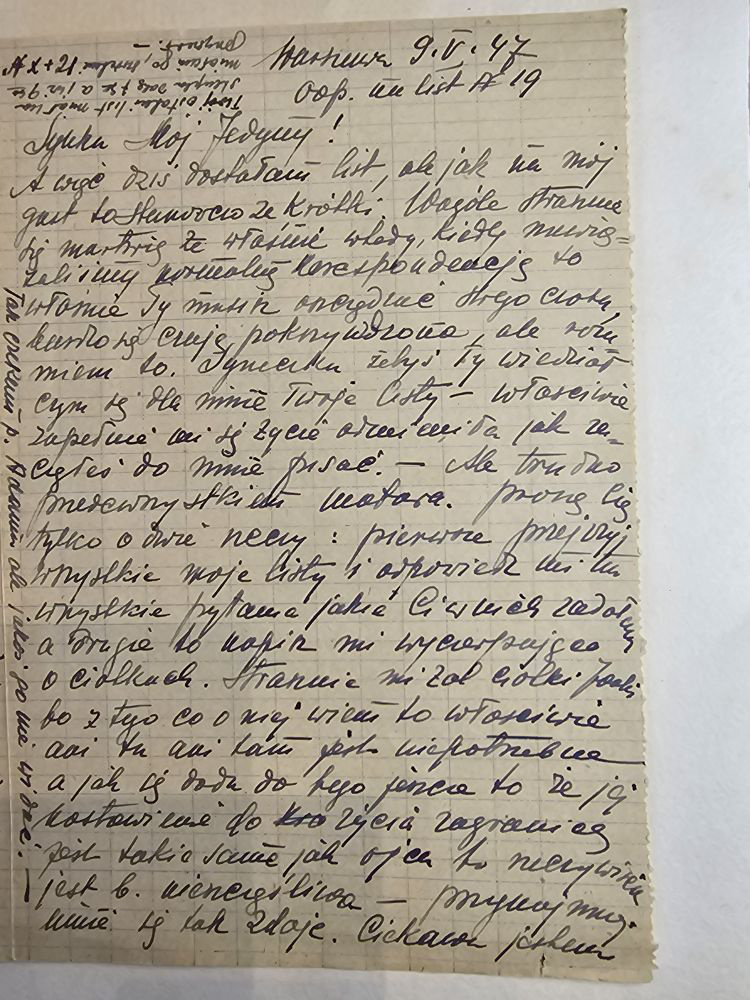 Warszawa 9.V.47
odp. na list № 19
Synku Mój Jedyny!
A więc dziś dostałam list, ale jak na mój
gust to stanowczo za krótki. Wogóle strasznie
się martwię że właśnie wtedy, kiedy nawią=
zaliśmy normalną korespondencję to
właśnie Ty musisz oszczędzać
bardzo się czuję pokrzywdzona, ale rozu
miem to. Syneczku żebyś Ty wiedział
czym są dla mnie Twoje listy – właściwie
zupełnie mi się życie odmieniło jak za-
cząłeś do mnie pisać. – Ale trudno
przedewszystkiem matura. Proszę Cię
tylko o dwie rzeczy: pierwsze przejrzyj
wszystkie moje listy i odpowiedz mi na
wszystkie pytania jakie Ci w nich zadałam
a drugie to napisz mi wyczerpująco
o ciotkach. Strasznie mi żal ciotki
bo z tego co o niej wiem to właściwie
ani tu ani tam jest niepotrzebna
a jak się doda do tego jeszcze to że jej
do życia zagranicą
jest takie same jak ojca to rzeczywiście
jest b. nieszczęśliwa – przynajmniej
mnie się tak zdaje. Ciekawa jestem
Tak czekam p. Adama ale jakoś go nie widać. –
Twój ostatni list